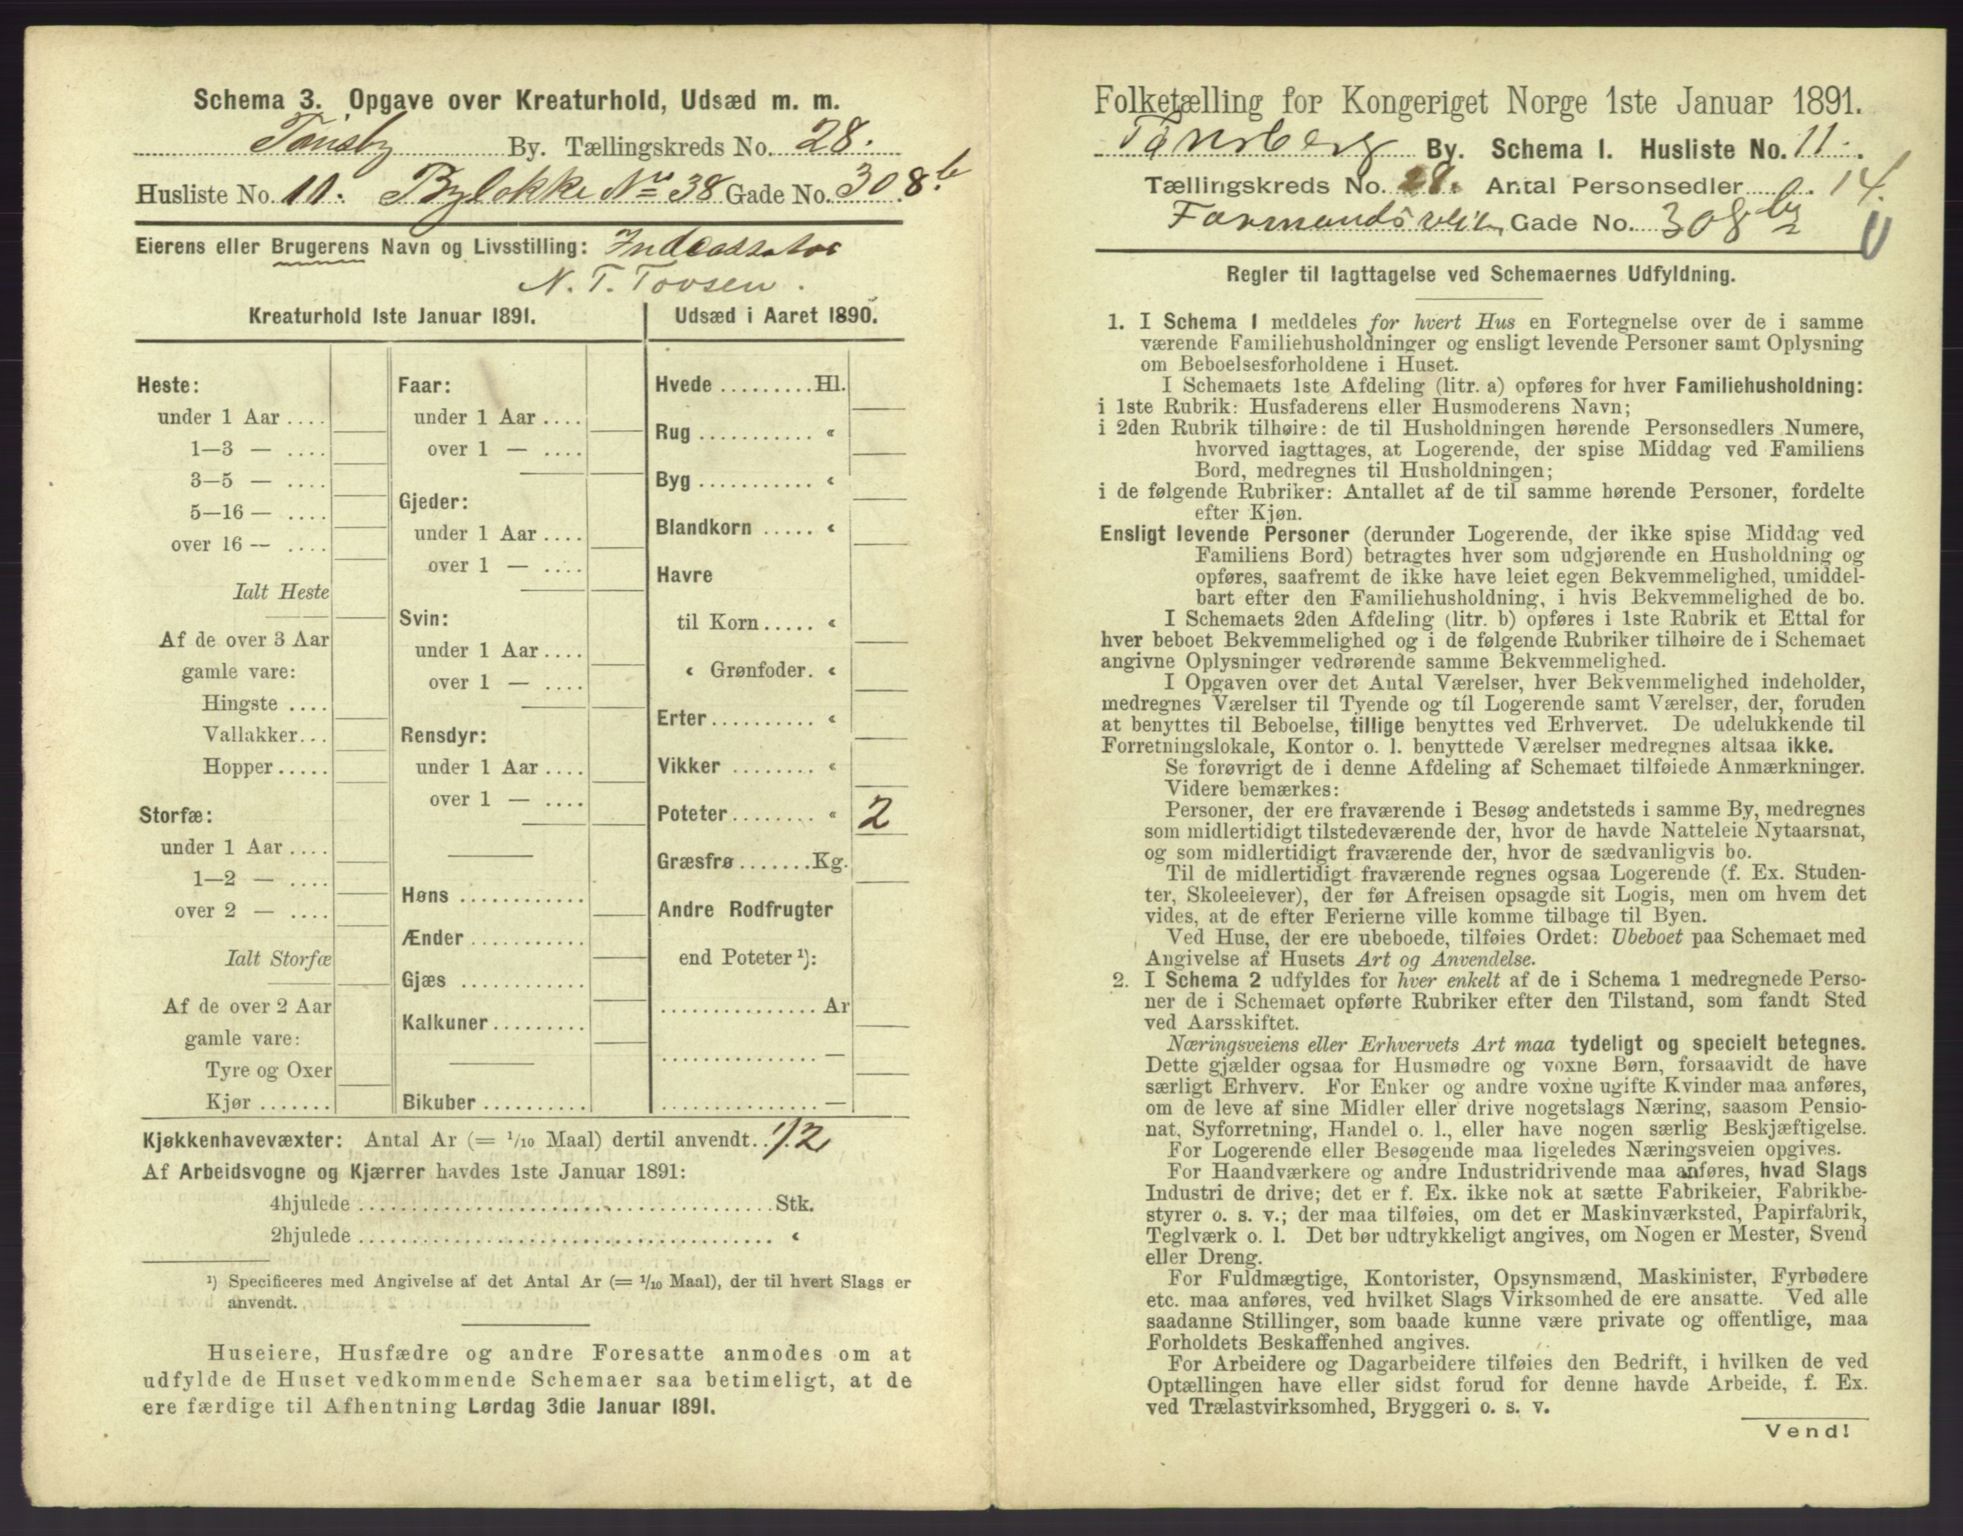 Schema 3. Opgave over Kreaturhold, Udsæd m. m.
Tönsby By. Tællingskreds No. 28.
Husliste No. 11. Byløkke No 38 Gade No. 308 b
Eierens eller Brugerens Navn og Livsstilling:
N. T. Tovsen.
Kreaturhold 1ste Januar 1891.
Heste:
under 1 Aar ....
1—3 — ....
3—5 — ....
5—16 — ....
over 16 — ....
Ialt Heste
Af de over 3 Aar
gamle vare:
Hingste ....
Vallakker...
Hopper.....
Storfæ:
under 1 Aar ....
1—2 — ....
over 2 — ....
Ialt Storfæ
Af de over 2 Aar
gamle vare:
Tyre og Oxer
Kjør .......
Faar:
under 1 Aar ....
over 1 — ....
Gjeder:
under 1 Aar ....
over 1 — ....
Svin:
under 1 Aar ....
over 1 — ....
Rensdyr:
under 1 Aar ....
over 1 — ....
Høns ............
Ænder ...........
Gjæs ............
Kalkuner.........
Bikuber ..........
Udsæd i Aaret 1890.
Hvede .........Hl.
Rug ........... «
Byg ........... «
Blandkorn ..... «
Havre
til Korn ..... «
« Grønfoder. «
Erter .......... «
Vikker ........ «
Poteter ........ « 2
Græsfrø .......Kg.
Andre Rodfrugter
end Poteter ¹):
............... Ar
............... —
............... —
Kjøkkenhavevæxter: Antal Ar (= 1/10 Maal) dertil anvendt.. 1/2
Af Arbeidsvogne og Kjærrer havdes 1ste Januar 1891:
4hjulede ....................................Stk.
2hjulede .................................... «
¹) Specificeres med Angivelse af det Antal Ar (= 1/10 Maal), der til hvert Slags er
anvendt.
Huseiere, Husfædre og andre Foresatte anmodes om at
udfylde de Huset vedkommende Schemaer saa betimeligt, at de
ere færdige til Afhentning Lørdag 3die Januar 1891.
Folketælling for Kongeriget Norge 1ste Januar 1891.
Tönsberg By. Schema I. Husliste No. 11.
Tællingskreds No. 28. Antal Personsedler 14.
Farmandsveien Gade No. 308
Regler til Iagttagelse ved Schemaernes Udfyldning.
1. I Schema 1 meddeles for hvert Hus en Fortegnelse over de i samme
værende Familiehusholdninger og ensligt levende Personer samt Oplysning
om Beboelsesforholdene i Huset.
I Schemaets 1ste Afdeling (litr. a) opføres for hver Familiehusholdning:
i 1ste Rubrik: Husfaderens eller Husmoderens Navn;
i 2den Rubrik tilhøire: de til Husholdningen hørende Personsedlers Numere,
hvorved iagttages, at Logerende, der spise Middag ved Familiens
Bord, medregnes til Husholdningen;
i de følgende Rubriker: Antallet af de til samme hørende Personer, fordelte
efter Kjøn.
Ensligt levende Personer (derunder Logerende, der ikke spise Middag ved
Familiens Bord) betragtes hver som udgjørende en Husholdning og
opføres, saafremt de ikke have leiet egen Bekvemmelighed, umiddel-
bart efter den Familiehusholdning, i hvis Bekvemmelighed de bo.
I Schemaets 2den Afdeling (litr. b) opføres i 1ste Rubrik et Ettal for
hver beboet Bekvemmelighed og i de følgende Rubriker tilhøire de i Schemaet
angivne Oplysninger vedrørende samme Bekvemmelighed.
I Opgaven over det Antal Værelser, hver Bekvemmelighed indeholder,
medregnes Værelser til Tyende og til Logerende samt Værelser, der, foruden
at benyttes til Beboelse, tillige benyttes ved Erhvervet. De udelukkende til
Forretningslokale, Kontor o. l. benyttede Værelser medregnes altsaa ikke.
Se forøvrigt de i denne Afdeling af Schemaet tilføiede Anmærkninger.
Videre bemærkes:
Personer, der ere fraværende i Besøg andetsteds i samme By, medregnes
som midlertidigt tilstedeværende der, hvor de havde Natteleie Nytaarsnat,
og som midlertidigt fraværende der, hvor de sædvanligvis bo.
Til de midlertidigt fraværende regnes ogsaa Logerende (f. Ex. Studen-
ter, Skoleelever), der før Afreisen opsagde sit Logis, men om hvem det
vides, at de efter Ferierne ville komme tilbage til Byen.
Ved Huse, der ere ubeboede, tilføies Ordet: Ubeboet paa Schemaet med
Angivelse af Husets Art og Anvendelse.
2. I Schema 2 udfyldes for hver enkelt af de i Schema 1 medregnede Perso-
ner de i Schemaet opførte Rubriker efter den Tilstand, som fandt Sted
ved Aarsskiftet.
Næringsveiens eller Erhvervets Art maa tydeligt og specielt betegnes.
Dette gjælder ogsaa for Husmødre og voxne Børn, forsaavidt de have
særligt Erhverv. For Enker og andre voxne ugifte Kvinder maa anføres,
om de leve af sine Midler eller drive nogetslags Næring, saasom Pensio-
nat, Syforretning, Handel o. l., eller have nogen særlig Beskjæftigelse.
For Logerende eller Besøgende maa ligeledes Næringsveien opgives.
For Haandværkere og andre Industridrivende maa anføres, hvad Slags
Industri de drive; det er f. Ex. ikke nok at sætte Fabrikeier, Fabrikbe-
styrer o. s. v.; der maa tilføies, om det er Maskinværksted, Papirfabrik,
Teglværk o. l. Det bør udtrykkeligt angives, om Nogen er Mester, Svend
eller Dreng.
For Fuldmægtige, Kontorister, Opsynsmænd, Maskinister, Fyrbødere
etc. maa anføres, ved hvilket Slags Virksomhed de ere ansatte. Ved alle
saadanne Stillinger, som baade kunne være private og offentlige, maa
Forholdets Beskaffenhed angives.
For Arbeidere og Dagarbeidere tilføies den Bedrift, i hvilken de ved
Optællingen have eller sidst forud for denne havde Arbeide, f. Ex.
ved Trælastvirksomhed, Bryggeri o. s. v.
Vend!